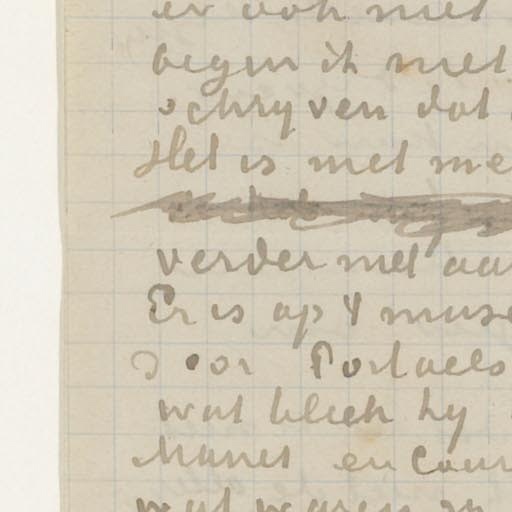 er ook niet
begin ik met
schryven dat
Het is met me
verder met aa
Er is op 't muse
door Portaels
wat bleek hy
Manet en Cour
wat waren zy